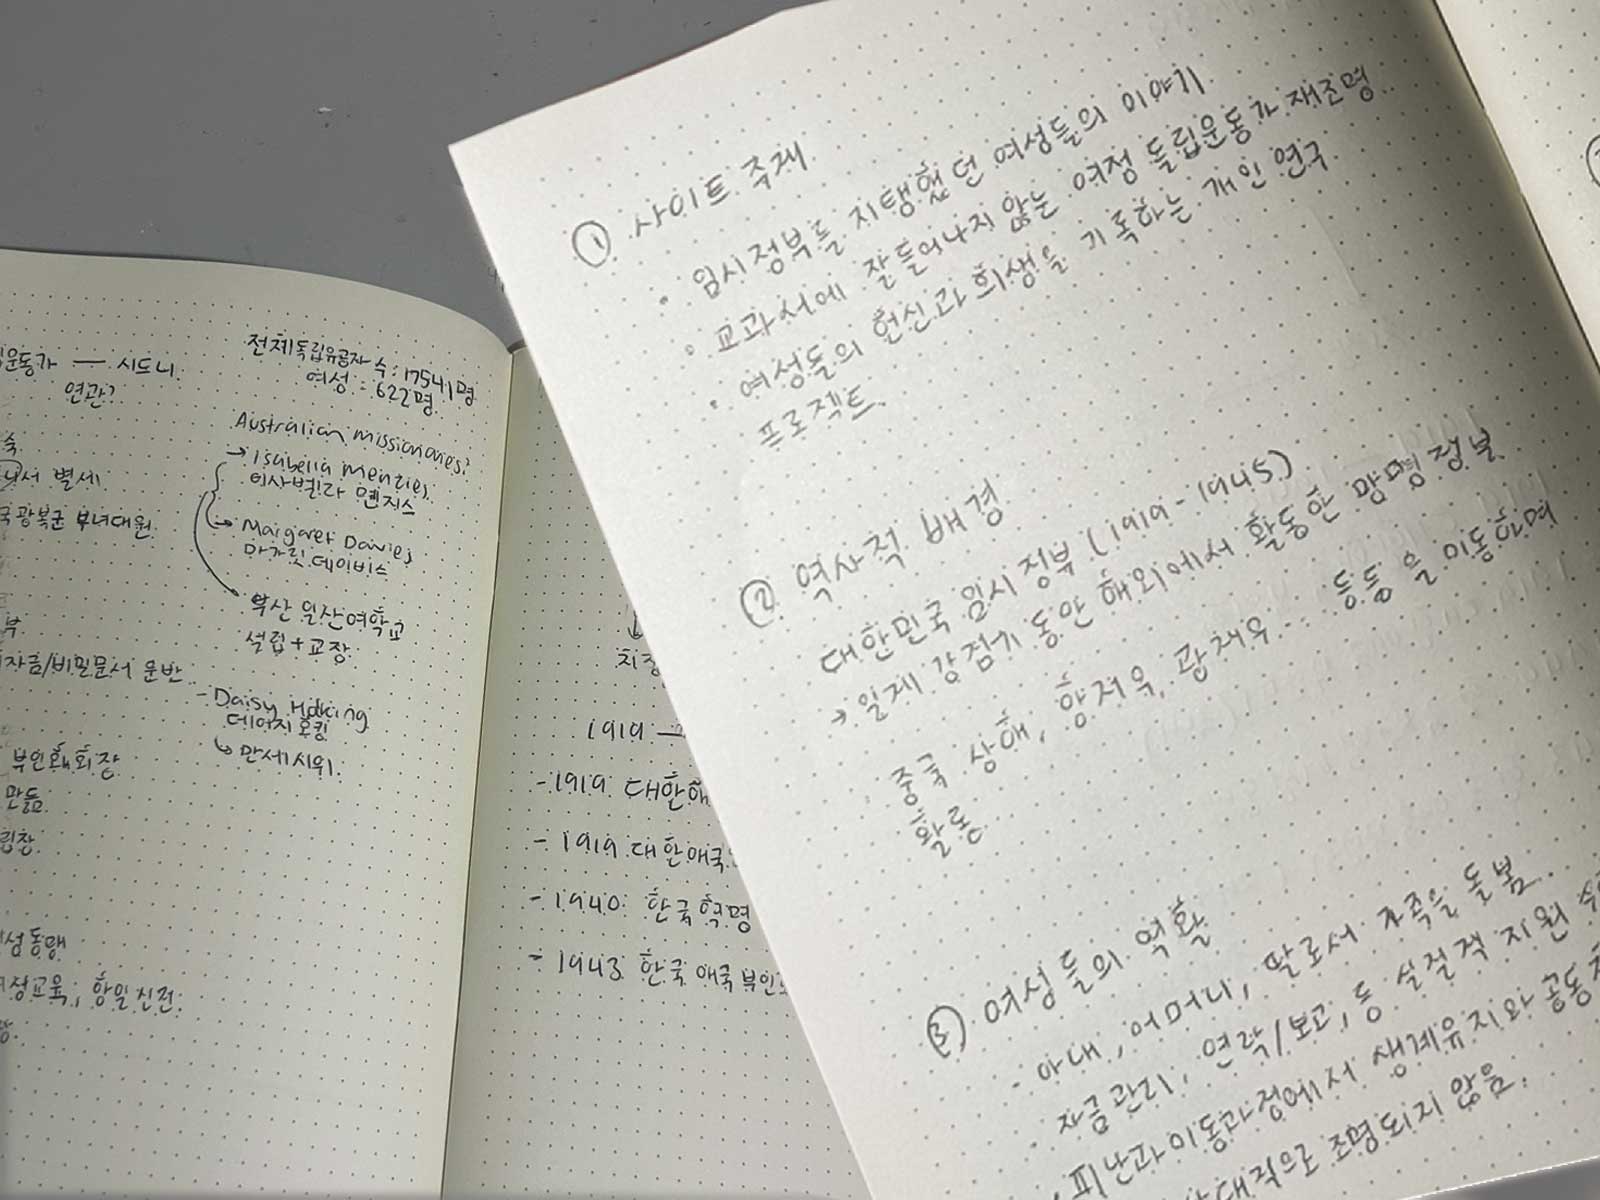 운동가 — 시드니
연관?
숙
서 별세
국광복군 부녀대원
부
자금/비밀문서 운반
부인회 회장
만듦
립창
성동맹
정교육, 항일 선전
전체독립유공자 수 : 17541명
여성 : 622명
Australian missionaries?
→ Isabella Menzies
이사벨라 멘지스
→ Margaret Davies
마가릿 데이비스
부산 일신여학교
설립 + 교장
- Daisy Hocking
데이지 호킹
↳ 만세시위
1919 —
- 1919 대한애
- 1919 대한애국
- 1940: 한국혁명
- 1943 한국 애국부인
① 사이트 주제
• 임시정부를 지탱했던 여성들의 이야기
• 교과서에 잘 들어나지 않는 여정 독립운동가 재조명
• 여성들의 헌신과 희생을 기록하는 개인 연구
프로젝트
② 역사적 배경
대한민국 임시정부 (1919 - 1945)
→ 일제 강점기 동안 해외에서 활동한 망명 정부
중국 상해, 항저우, 광저우... 등등을 이동하며
활동
③ 여성들의 역활
- 아내, 어머니, 딸로서 가족을 돌봄
- 자금관리, 연락/보고, 등 실질적 지원
피난과 이동과정에서 생계유지와 공동
대적으로 조명되지 않음.